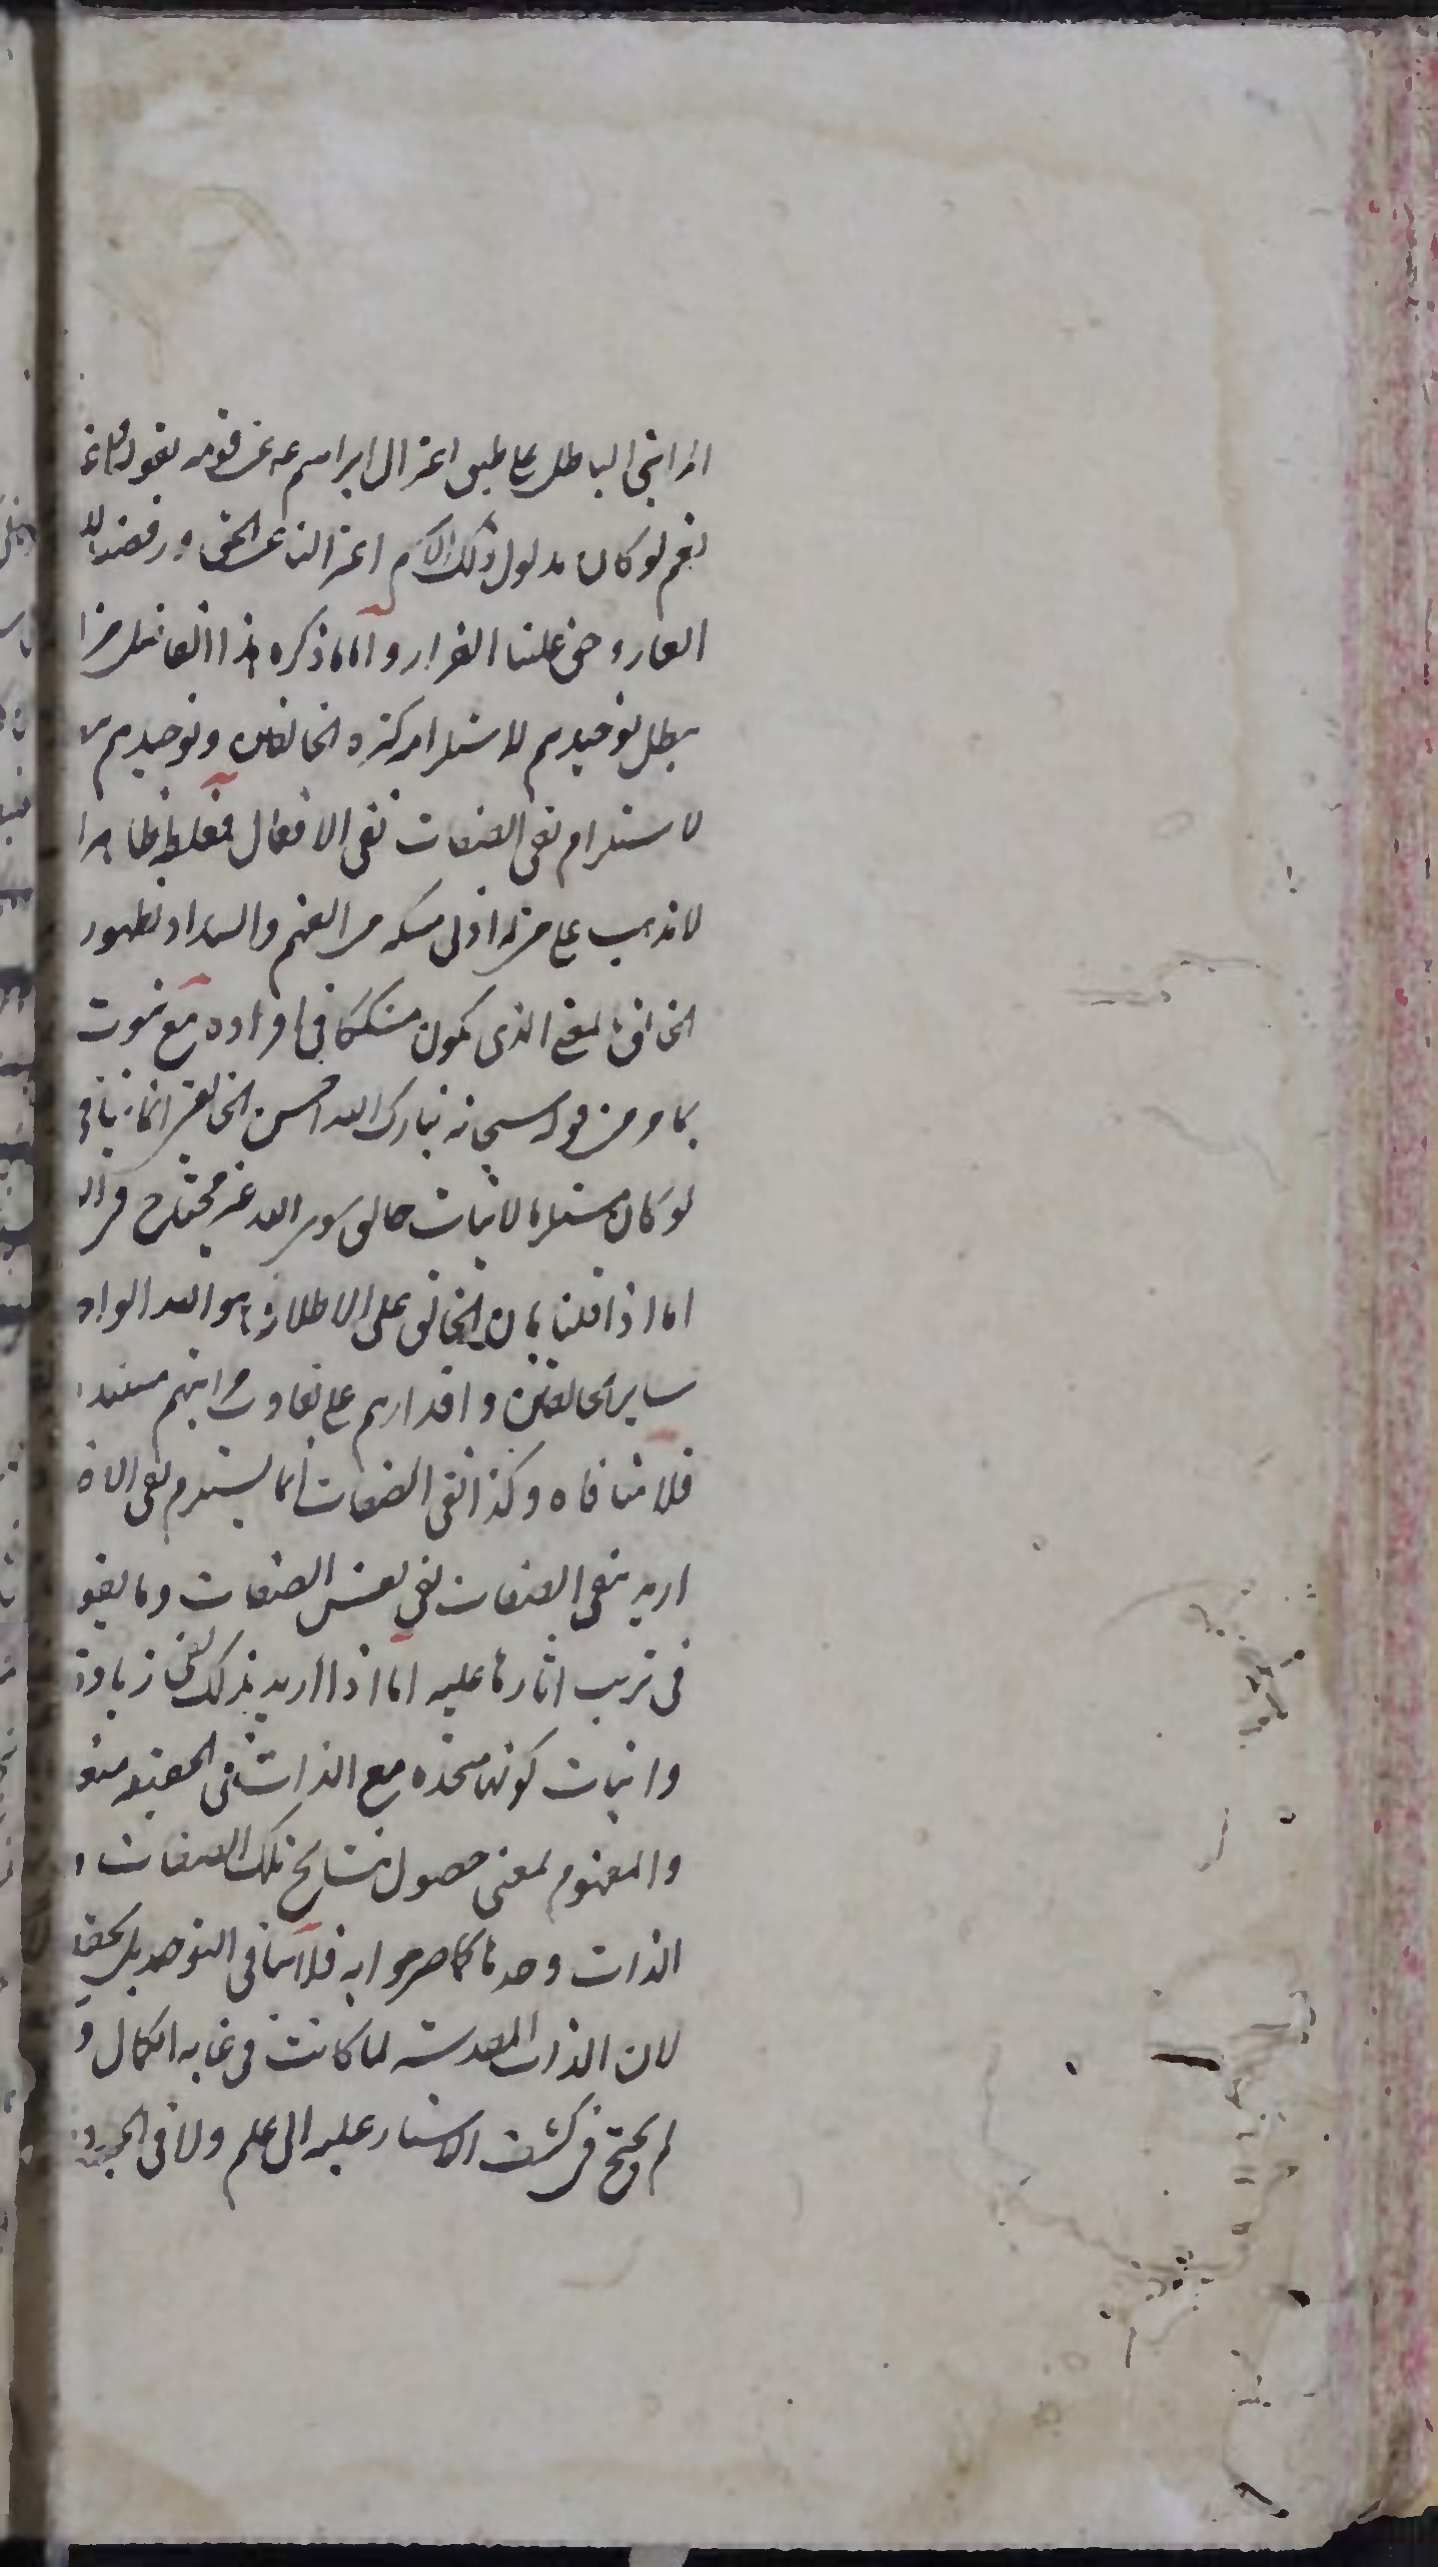 الرافضي الباطل على طبق اعتزال ابراهيم عه عن قومه بقوله
نعم لو كان مدلول ذلك الكلام اعتزالنا عن الحق ورفضنا
العار وحق علينا الفرار واما ما ذكره هذا الفاضل من ا
بطل توحيدهم لاستلزامه كثرة الخالقين وتوحيدهم
لاستلزام نفي الصفات نفي الافعال فغلط ظاهر ا
لا يذهب على من له ادنى مسكه من الفهم والسداد لظهور
الخالق بالمعنى الذي يكون مشككا في افراده مع ثبوت
بما ومن قوله سبحانه تبارك الله احسن الخالقين انما ينافي
لو كان مستلزما لاثبات خالق سوى الله غير محتاج في
اما اذا قلنا بان الخالق على الاطلاق هو الله الواحد
ساير الخالقين واقدارهم على تفاوت مراتبهم مستند ا
فلا منافاه وكذا نفي الصفات انما يستلزم نفي الا
اريد بنفي الصفات نفي نفس الصفات وما يقو
في ترتب اثارها عليه اما اذا اريد بذلك نفي زيادة
واثبات كونها متحده مع الذات في الحقيقة
والمفهوم بمعنى حصول نتايج تلك الصفات و
الذات وحدها كما صرحوا به فلا ينافي التوحيد بل يحق
لان الذات المقدسة لما كانت في غاية الكمال و
لم يحتج في كشف الاشياء عليه الى علم ولا في